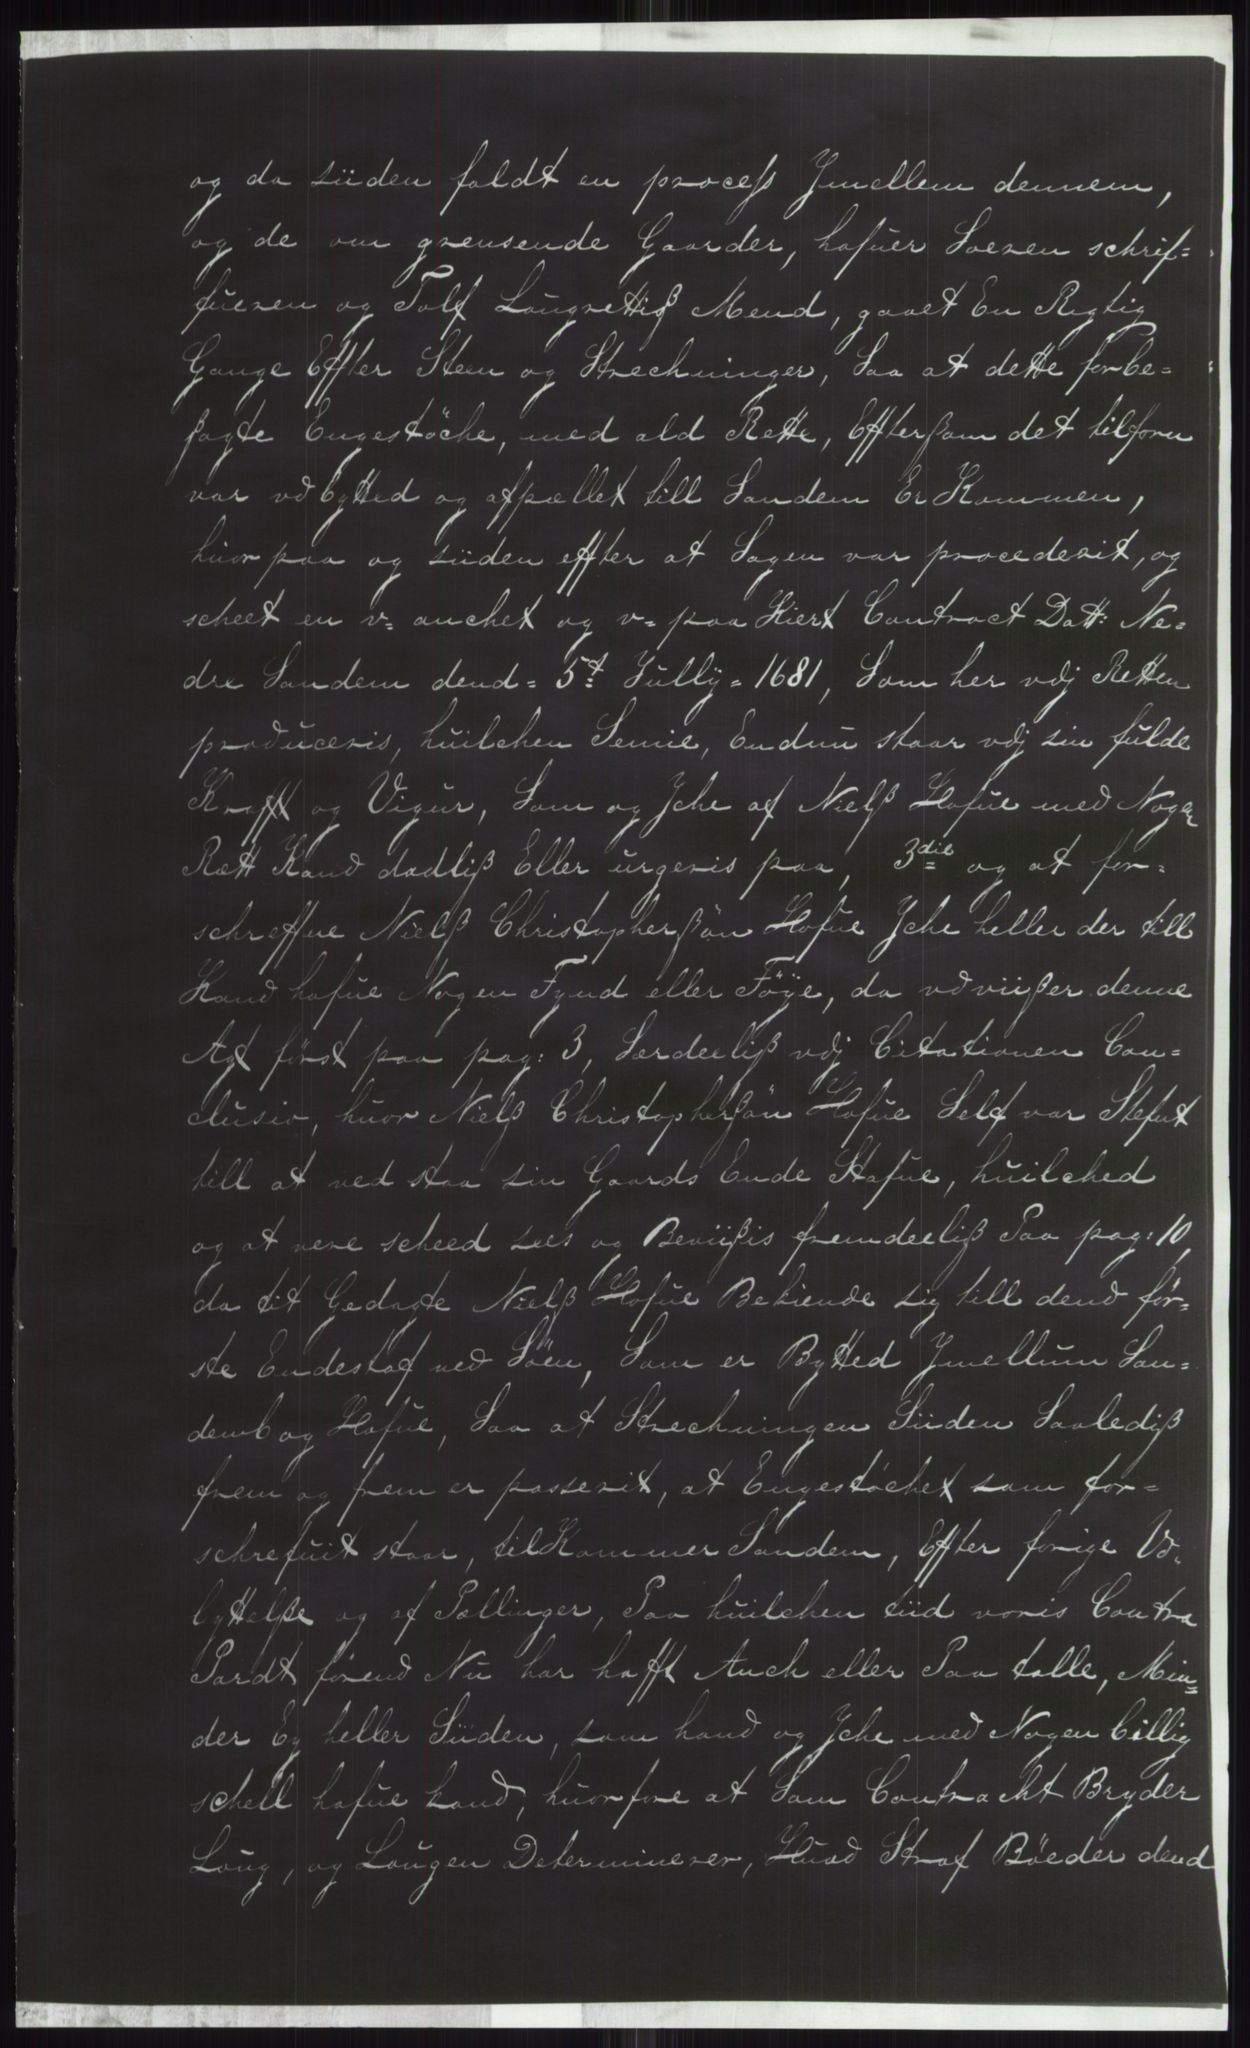 og da siiden faldt en process Jmellem dennem,
og de om grensende Gaarder, hafuer Soeren schrif=
fueren og Tolf Laugrettiß Mend, gaaet En Rigtig
Gange Effter Steen og Strechninger, Saa at dette forbe=
ßagte Engestöche, med ald Rette, Effterßom det tilforn
var vdbytted og afpællet till Sandem Er Kommen,
huor paa og siiden effter at Sagen var procederit, og
scheet en v= anchet og v= paa Kiert Contract Datt: Ne=
dre Sandem dend= 5t Jully= 1681, Som her vdj Retten
produceris, huilchen Semie, Endnu staar vdj sin fulde
Krafft og Vigur, Som og Jche af Nielß Hafue med Nogen
Rett Kand dadliß Eller urgeris paa, 3die og at for=
schreffne Nielß Christopherßön Hafue Jche heller der till
Kand hafue Nogen Fynd eller Föÿe, da vdviißer denne
Agt först paa pag: 3, Særdeeliß vdj Citationen Con=
clusio, huor Nielß Christopherßön Hafue Self var Stefnt
till at ved staa sin Gaards Ende Stafue, huilched
og at vere scheed sees og Beviißis fremdeeliß Paa pag: 10,
da tit Gedagte Nielß Hafue Bekiende sig till dend för=
ste Endestaf ved Söen, Som er Bytted Jmellum San=
demb og Hafue, Saa at Strechningen Siiden Saalediß
frem og frem er passerit, at Engestöchet som for=
schrefuit staar, tilKommer Sandem, Effter forige Vd=
byttelße og af Pællinger, Paa huilchen tiid voris Contra
Pardt förend Nu har hafft Anch eller Paa talle, Min=
der Ey heller Siiden, som hand og Jche med Nogen billig
schell hafue kand, huorfore at Som Contracht Bryder
Loug, og Lougen Determinerer, Huad Straf Böeder dend